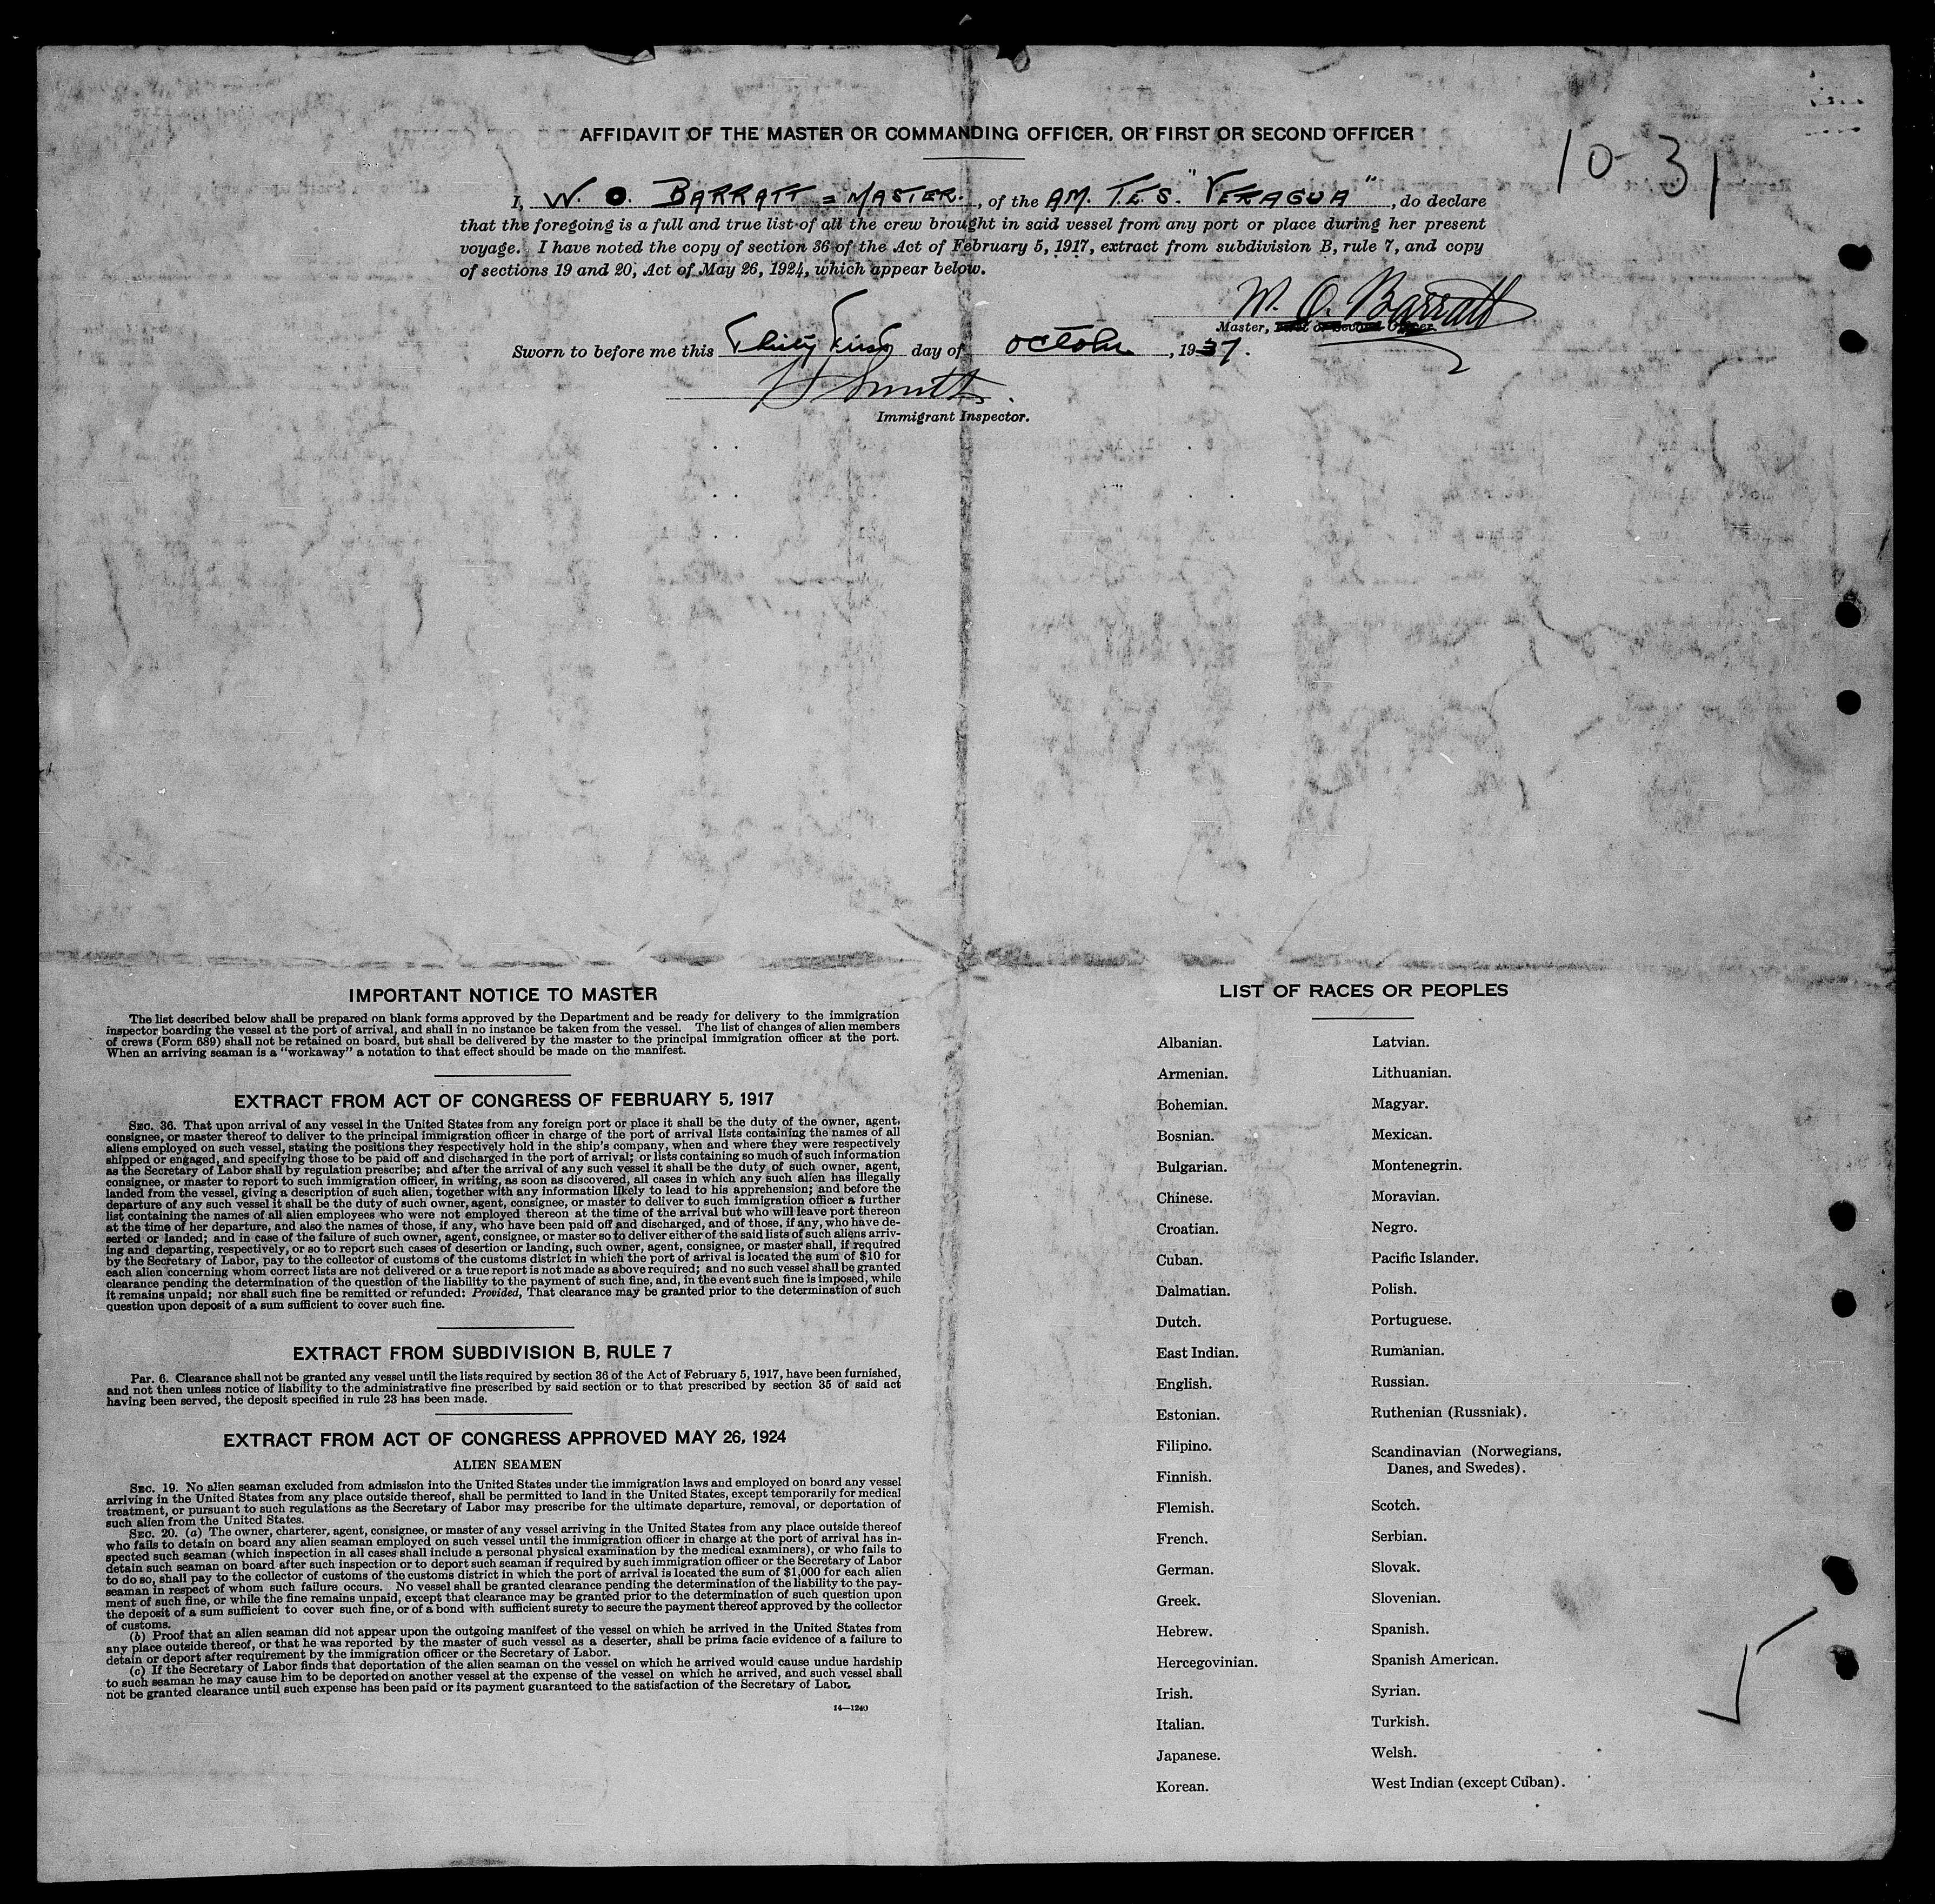 AFFIDAVIT OF THE MASTER OR COMMANDING OFFICER, OR FIRST OR SECOND OFFICER
10-31
I, W. O. BARRATT = MASTER., of the AM. T.E.S. "VERAGUA", do declare
that the foregoing is a full and true list of all the crew brought in said vessel from any port or place during her present
voyage. I have noted the copy of section 36 of the Act of February 5, 1917, extract from subdivision B, rule 7, and copy
of sections 19 and 20, Act of May 26, 1924, which appear below.
W. O. Barratt
Master, First or Second Officer.
Sworn to before me this Thirty First day of October, 1937.
Smith
Immigrant Inspector.
IMPORTANT NOTICE TO MASTER
The list described below shall be prepared on blank forms approved by the Department and be ready for delivery to the immigration
inspector boarding the vessel at the port of arrival, and shall in no instance be taken from the vessel. The list of changes of alien members
of crews (Form 689) shall not be retained on board, but shall be delivered by the master to the principal immigration officer at the port.
When an arriving seaman is a "workaway" a notation to that effect should be made on the manifest.
EXTRACT FROM ACT OF CONGRESS OF FEBRUARY 5, 1917
SEC. 36. That upon arrival of any vessel in the United States from any foreign port or place it shall be the duty of the owner, agent,
consignee, or master thereof to deliver to the principal immigration officer in charge of the port of arrival lists containing the names of all
aliens employed on such vessel, stating the positions they respectively hold in the ship's company, when and where they were respectively
shipped or engaged, and specifying those to be paid off and discharged in the port of arrival; or lists containing so much of such information
as the Secretary of Labor shall by regulation prescribe; and after the arrival of any such vessel it shall be the duty of such owner, agent,
consignee, or master to report to such immigration officer, in writing, as soon as discovered, all cases in which any such alien has illegally
landed from the vessel, giving a description of such alien, together with any information likely to lead to his apprehension; and before the
departure of any such vessel it shall be the duty of such owner, agent, consignee, or master to deliver to such immigration officer a further
list containing the names of all alien employees who were not employed thereon at the time of the arrival but who will leave port thereon
at the time of her departure, and also the names of those, if any, who have been paid off and discharged, and of those, if any, who have de-
serted or landed; and in case of the failure of such owner, agent, consignee, or master so to deliver either of the said lists of such aliens arriv-
ing and departing, respectively, or so to report such cases of desertion or landing, such owner, agent, consignee, or master shall, if required
by the Secretary of Labor, pay to the collector of customs of the customs district in which the port of arrival is located the sum of $10 for
each alien concerning whom correct lists are not delivered or a true report is not made as above required; and no such vessel shall be granted
clearance pending the determination of the question of the liability to the payment of such fine, and, in the event such fine is imposed, while
it remains unpaid; nor shall such fine be remitted or refunded: Provided, That clearance may be granted prior to the determination of such
question upon deposit of a sum sufficient to cover such fine.
EXTRACT FROM SUBDIVISION B, RULE 7
Par. 6. Clearance shall not be granted any vessel until the lists required by section 36 of the Act of February 5, 1917, have been furnished,
and not then unless notice of liability to the administrative fine prescribed by said section or to that prescribed by section 35 of said act
having been served, the deposit specified in rule 23 has been made.
EXTRACT FROM ACT OF CONGRESS APPROVED MAY 26, 1924
ALIEN SEAMEN
SEC. 19. No alien seaman excluded from admission into the United States under the immigration laws and employed on board any vessel
arriving in the United States from any place outside thereof, shall be permitted to land in the United States, except temporarily for medical
treatment, or pursuant to such regulations as the Secretary of Labor may prescribe for the ultimate departure, removal, or deportation of
such alien from the United States.
SEC. 20. (a) The owner, charterer, agent, consignee, or master of any vessel arriving in the United States from any place outside thereof
who fails to detain on board any alien seaman employed on such vessel until the immigration officer in charge at the port of arrival has in-
spected such seaman (which inspection in all cases shall include a personal physical examination by the medical examiners), or who fails to
detain such seaman on board after such inspection or to deport such seaman if required by such immigration officer or the Secretary of Labor
to do so, shall pay to the collector of customs of the customs district in which the port of arrival is located the sum of $1,000 for each alien
seaman in respect of whom such failure occurs. No vessel shall be granted clearance pending the determination of the liability to the pay-
ment of such fine, or while the fine remains unpaid, except that clearance may be granted prior to the determination of such question upon
the deposit of a sum sufficient to cover such fine, or of a bond with sufficient surety to secure the payment thereof approved by the collector
of customs.
(b) Proof that an alien seaman did not appear upon the outgoing manifest of the vessel on which he arrived in the United States from
any place outside thereof, or that he was reported by the master of such vessel as a deserter, shall be prima facie evidence of a failure to
detain or deport after requirement by the immigration officer or the Secretary of Labor.
(c) If the Secretary of Labor finds that deportation of the alien seaman on the vessel on which he arrived would cause undue hardship
to such seaman he may cause him to be deported on another vessel at the expense of the vessel on which he arrived, and such vessel shall
not be granted clearance until such expense has been paid or its payment guaranteed to the satisfaction of the Secretary of Labor.
14—1240
LIST OF RACES OR PEOPLES
Albanian.
Armenian.
Bohemian.
Bosnian.
Bulgarian.
Chinese.
Croatian.
Cuban.
Dalmatian.
Dutch.
East Indian.
English.
Estonian.
Filipino.
Finnish.
Flemish.
French.
German.
Greek.
Hebrew.
Hercegovinian.
Irish.
Italian.
Japanese.
Korean.
Latvian.
Lithuanian.
Magyar.
Mexican.
Montenegrin.
Moravian.
Negro.
Pacific Islander.
Polish.
Portuguese.
Rumanian.
Russian.
Ruthenian (Russniak).
Scandinavian (Norwegians,
Danes, and Swedes).
Scotch.
Serbian.
Slovak.
Slovenian.
Spanish.
Spanish American.
Syrian.
Turkish.
Welsh.
West Indian (except Cuban).